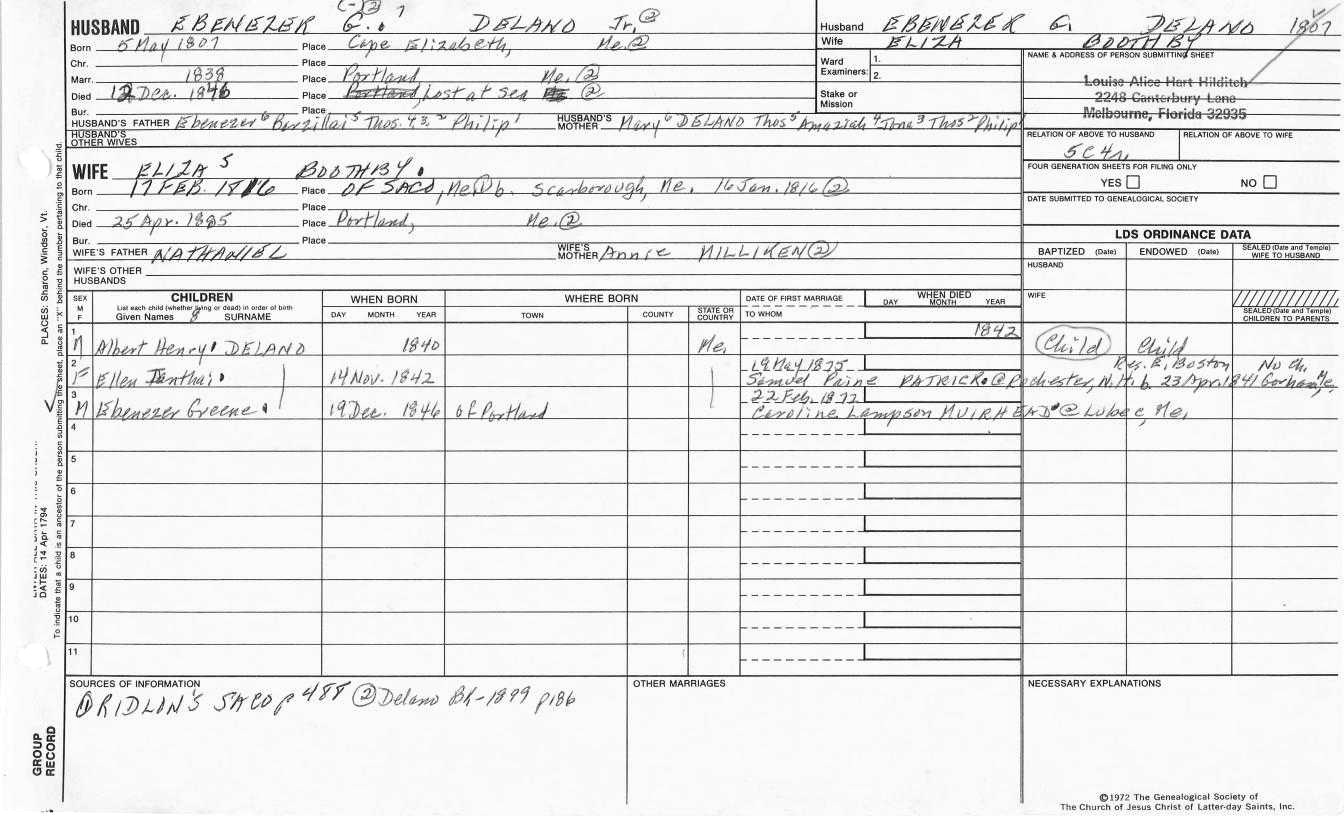 (-)② 7
HUSBAND EBENEZER G. DELANO Jr.②
Born 5 May 1807 Place Cape Elizabeth, Me.②
Chr. Place
Marr. 1838 Place Portland, Me.②
Died 12 Dec. 1846 Place Portland, Lost at sea Me ②
Bur. Place
HUSBAND'S FATHER Ebenezer⁶ Barzillai⁵ Thos.⁴,³,² Philip¹ HUSBAND'S MOTHER Mary⁶ DELANO Thos⁵ Amaziah⁴ Jona³ Thos² Philip¹
HUSBAND'S OTHER WIVES
WIFE ELIZA S BOOTHBY.
Born 17 FEB. 1816 Place OF SACO, Me① b. Scarborough, Me. 16 Jan. 1816②
Chr. Place
Died 25 Apr. 1885 Place Portland, Me.②
Bur. Place
WIFE'S FATHER NATHANIEL WIFE'S MOTHER Annie MILLIKEN②
WIFE'S OTHER HUSBANDS
Husband EBENEZER G. DELANO 1807
Wife ELIZA BOOTHBY
Ward Examiners: 1.
2.
Stake or Mission
NAME & ADDRESS OF PERSON SUBMITTING SHEET
Louise Alice Hart Hilditch
2248 Canterbury Lane
Melbourne, Florida 32935
RELATION OF ABOVE TO HUSBAND RELATION OF ABOVE TO WIFE
5C4r
FOUR GENERATION SHEETS FOR FILING ONLY
YES NO
DATE SUBMITTED TO GENEALOGICAL SOCIETY
LDS ORDINANCE DATA
BAPTIZED (Date) ENDOWED (Date) SEALED (Date and Temple) WIFE TO HUSBAND
HUSBAND
WIFE
SEALED (Date and Temple) CHILDREN TO PARENTS
SEX M F
CHILDREN
List each child (whether living or dead) in order of birth
Given Names SURNAME
WHEN BORN
DAY MONTH YEAR
WHERE BORN
TOWN COUNTY STATE OR COUNTRY
DATE OF FIRST MARRIAGE
TO WHOM
WHEN DIED
DAY MONTH YEAR
1 M Albert Henry DELANO 1840 Me. 1842 Child Child
2 F Ellen Ianthai 14 Nov. 1842 18 May 1875 Res. E. Boston No Ch.
Samuel Paine PATRICK @ Rochester, N.H. b. 23 Apr. 1841 Gorham, Me.
3 M Ebenezer Greene 19 Dec. 1846 of Portland 22 Feb. 1872
Caroline Lampson MUIRHEAD @ Lubec, Me.
4
5
6
7
8
9
10
11
SOURCES OF INFORMATION
① RIDLON'S SACO p 488 ② Delano Bk-1899 p186
OTHER MARRIAGES
NECESSARY EXPLANATIONS
©1972 The Genealogical Society of
The Church of Jesus Christ of Latter-day Saints, Inc.
PLACES: Sharon, Windsor, Vt.
DATES: 14 Apr 1794
To indicate that a child is an ancestor of the person submitting the sheet, place an "X" behind the number pertaining to that child.
GROUP RECORD